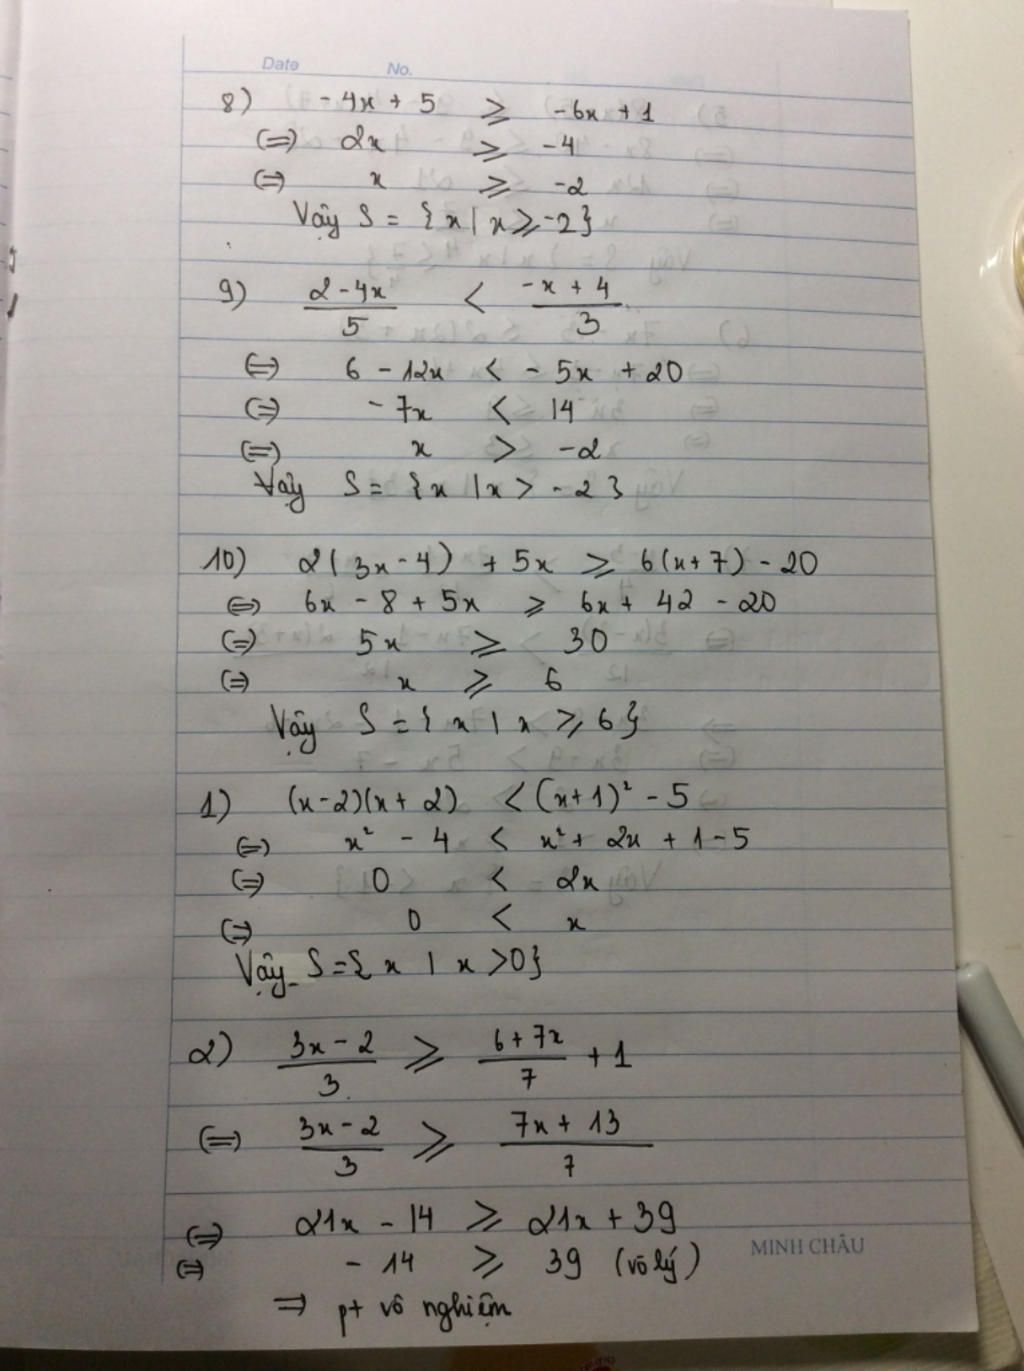 Date No.
8) -4x + 5 ⩾ -6x + 1
(=) 2x ⩾ -4
(=) x ⩾ -2
Vậy S = {x | x ⩾ -2}
9) (2 - 4x)/5 < (-x + 4)/3
(=) 6 - 12x < -5x + 20
(=) -7x < 14
(=) x > -2
Vậy S = {x | x > -2}
10) 2(3x - 4) + 5x ⩾ 6(x+7) - 20
(=) 6x - 8 + 5x ⩾ 6x + 42 - 20
(=) 5x ⩾ 30
(=) x ⩾ 6
Vậy S = {x | x ⩾ 6}
1) (x-2)(x+2) < (x+1)² - 5
(=) x² - 4 < x² + 2x + 1 - 5
(=) 0 < 2x
(=) 0 < x
Vậy S = {x | x > 0}
2) (3x - 2)/3 ⩾ (6 + 7x)/7 + 1
(=) (3x - 2)/3 ⩾ (7x + 13)/7
(=) 21x - 14 ⩾ 21x + 39
(=) -14 ⩾ 39 (vô lý)
=> pt vô nghiệm
MINH CHÂU